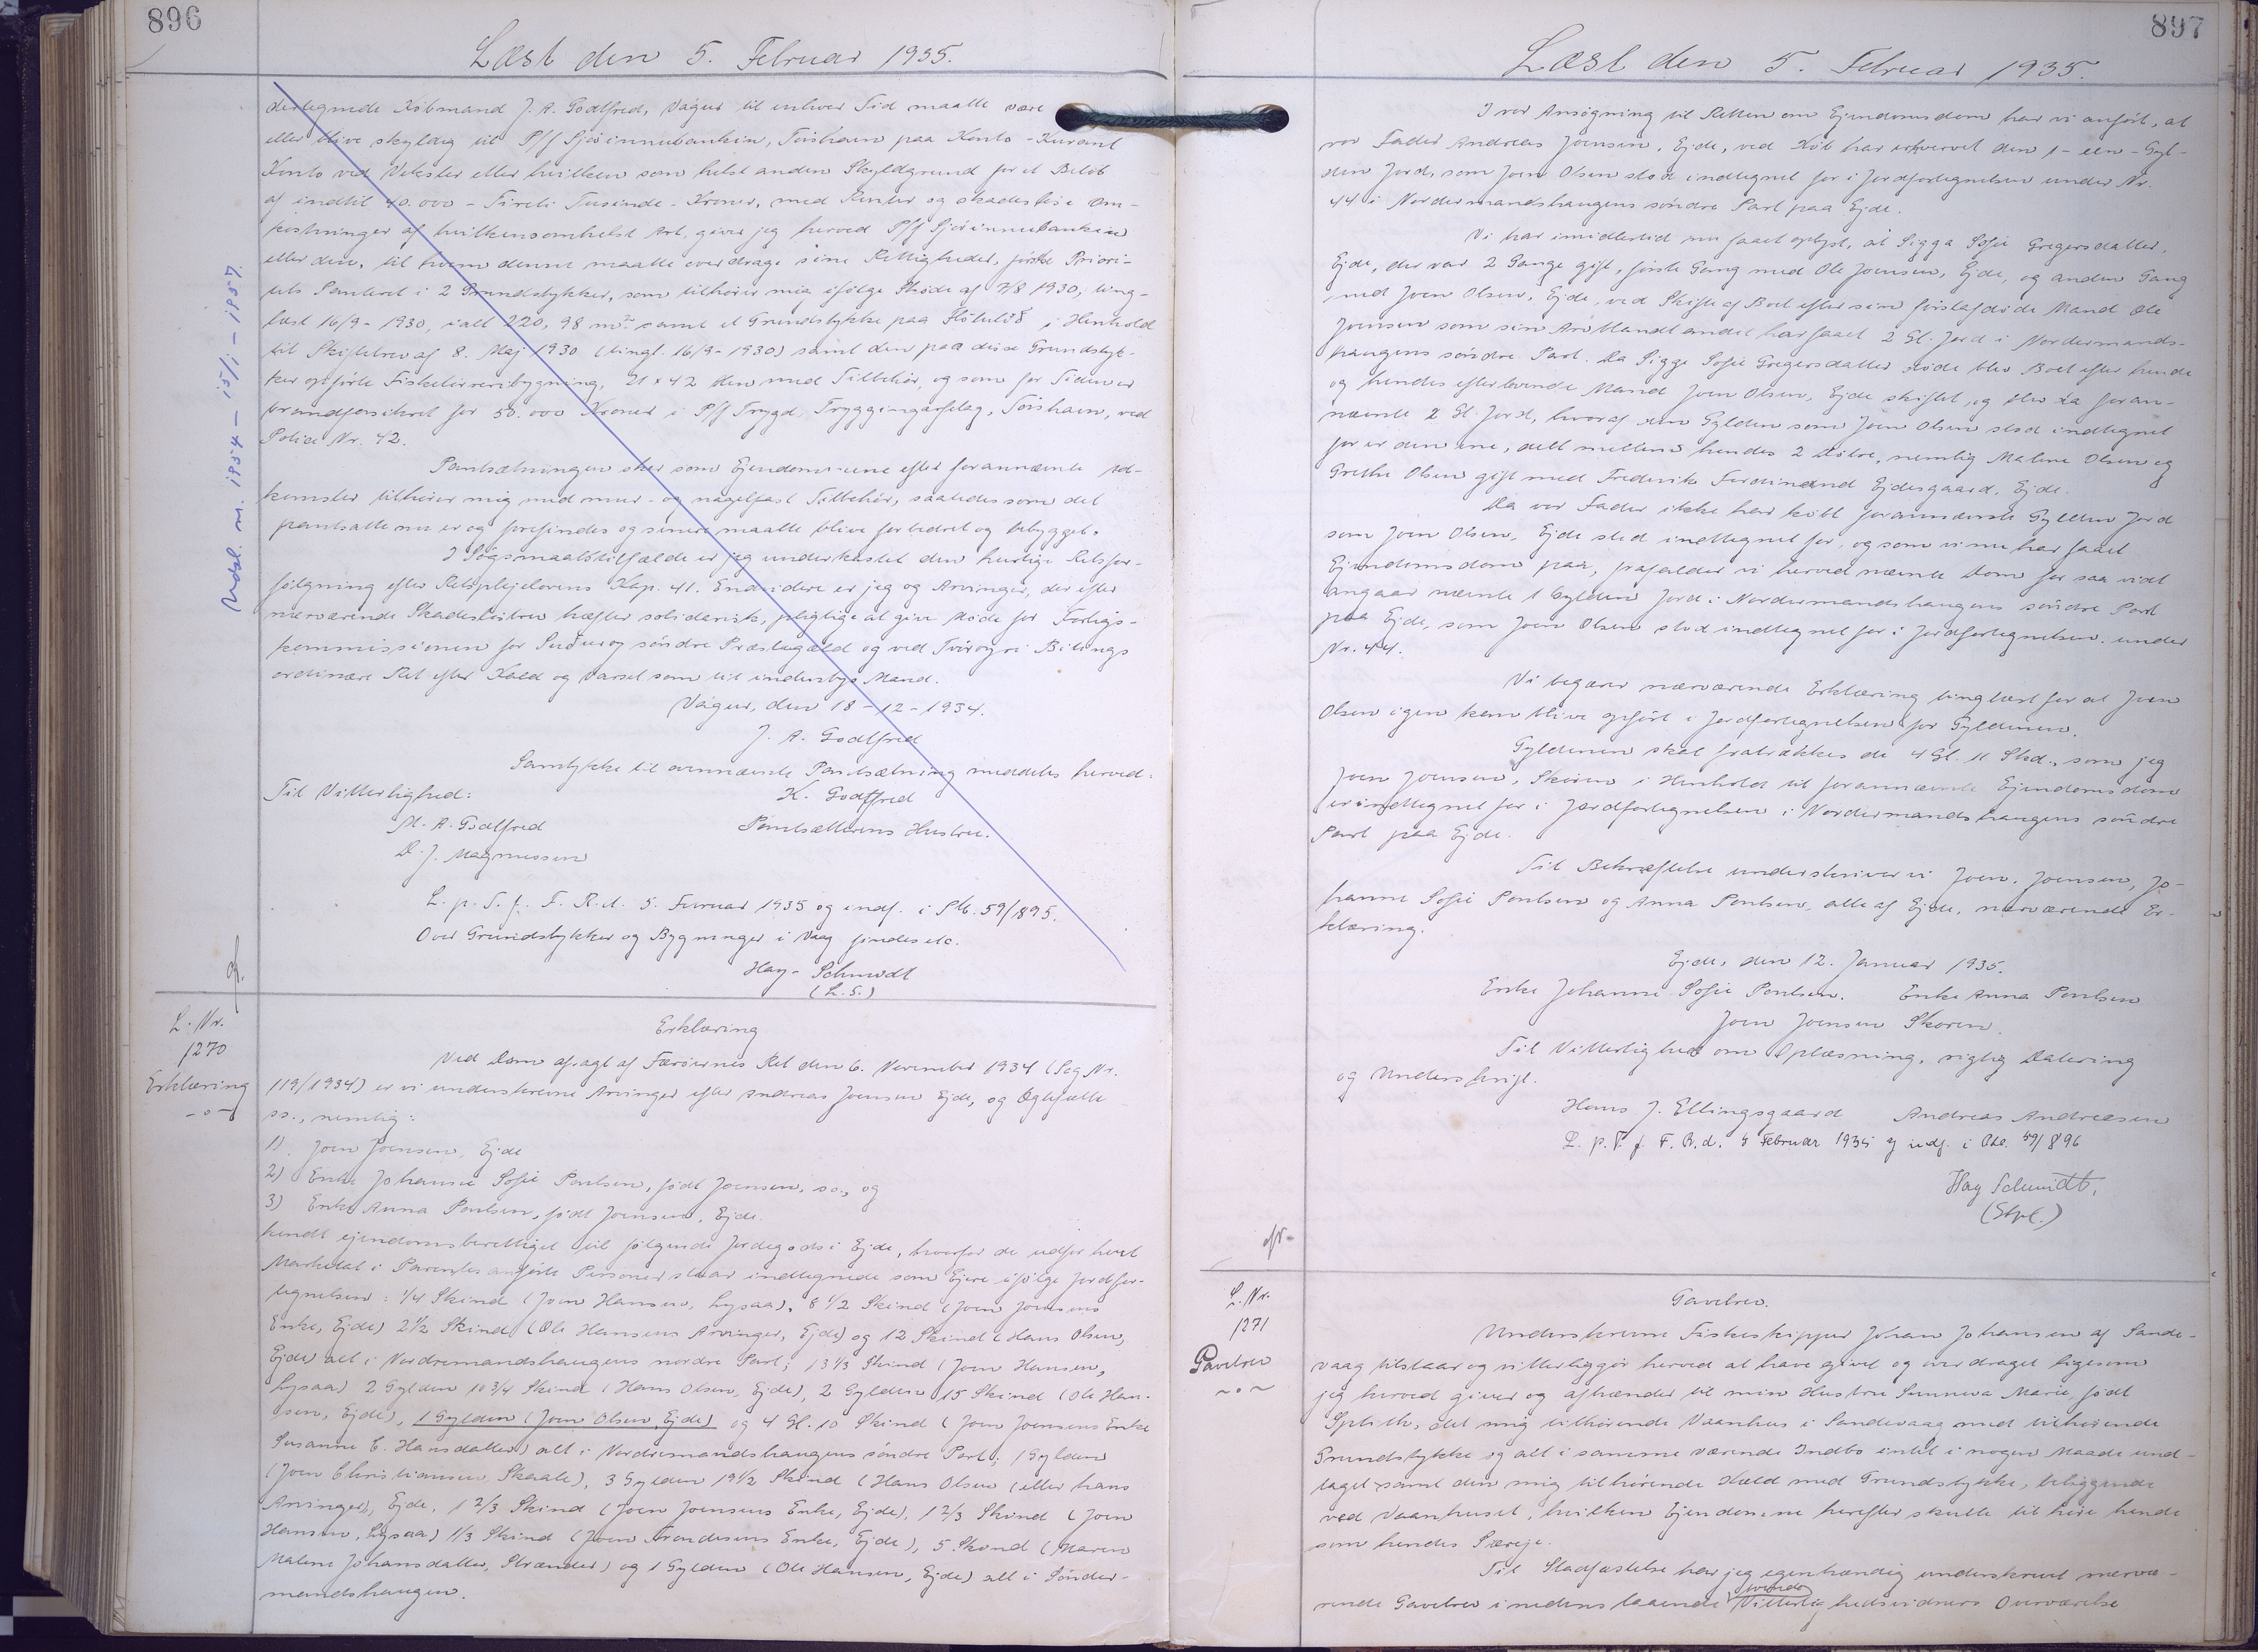 896
Læst den 5. Februar 1935.
dertegnede Købmand J. A. Godtfred, Vágur til enhver Tid maatte være
eller blive skyldig til P/f Sjóvinnubankin, Tórshavn paa Konto-Kurant
Konto ved Veksler eller hvilken som helst anden Skyldgrund for et Beløb
af indtil 40.000 - Fireti Tusinde - Kroner, med Renter og skadesløse Om-
kostninger af hvilkensomhelst Art, giver jeg herved P/f Sjóvinnubankin
eller den, til hvem denne maatte overdrage sine Rettigheder, første Priori-
tets Panteret i 2 Grundstykker, som tilhører mig ifølge Skøde af 7/8 1930, ting-
læst 16/9-1930, ialt 220,98 m² samt et Grundstykke paa i Henhold
til Skiftebrev af 8. Maj 1930 (tingl. 16/9-1930) samt den paa disse Grundstyk-
ker opførte Fisketørreribygning, 21 x 42 Alen med Tilbehør, og som for Tiden er
brandforsikret for 50.000 Kroner i P/f Trygd, Tryggingarfelag, Tórshavn, ved
Police Nr. 42.
Pantsætningen sker som Ejendommene efter forannævnte Ad-
komster tilhører mig med mur- og nagelfast Tilbehør, saaledes som det
pantsatte nu er og forefindes og senere maatte blive forbedret og bebygget.
I Søgsmaalstilfælde er jeg underkastet den hurtige Retsfor-
følgning efter Retsplejelovens Kap. 41. Endvidere er jeg og Arvinger, der efter
nærværende Skadesløsbrev hæfter solidarisk, pligtige at give Møde for Forligs-
kommissionen for Suðuroy søndre Præstegæld og ved Tvøroyri Bitings
ordinære Ret efter Kald og Varsel som til indenbys Mand.
Vágur, den 18-12-1934.
J. A. Godtfred
Samtykke til ovennævnte Pantsætning meddeles herved:
Til Vitterlighed: K. Godtfred
M. A. Godtfred Pantsætterens Hustru.
D. J. Magnussen
L. p. T. f. F. R. d. 5. Februar 1935 og indf. i Ptb. 59/895.
Over Grundstykker og Bygninger i Vaag findes etc.
Hay-Schmidt
(L.S.)
Udsl. m. 1954 - 15/1 - 1957.
L. Nr.
1270
Erklæring
-o-
Erklæring
Ved Dom afsagt af Færøernes Ret den 6. November 1934 (Sag Nr.
119/1934) er vi underskrevne Arvinger efter Andreas Joensen Ejde, og Ægtefælle
ss., nemlig:
1) Joen Joensen, Ejde
2) Enke Johanne Sofie Poulsen, født Joensen, ss., og
3) Enke Anna Poulsen, født Joensen, Ejde.
kendt ejendomsberettiget til følgende Jordegods i Ejde, hvorfor de udfor hvert
Marketal i Parentes anførte Personer staar indtegnede som Ejere ifølge Jordfor-
tegnelsen: 1/4 Skind (Joen Hansen, Lysaa), 8 1/2 Skind (Joen Joensens
Enke, Ejde) 2 1/2 Skind (Ole Hansens Arvinger, Ejde) og 12 Skind (Hans Olsen,
Ejde) alt i Nordremandshaugens nordre Part; 13 1/3 Skind (Joen Hansen,
Lysaa) 2 Gylden 10 3/4 Skind (Hans Olsen, Ejde), 2 Gylden 15 Skind (Ole Han-
sen, Ejde), 1 Gylden (Joen Olsen, Ejde) og 4 Gl. 10 Skind (Joen Joensens Enke
Susanne C. Hansdatter) alt i Nordremandshaugens søndre Part; 1 Gylden
(Joen Christiansen, Skaale), 3 Gylden 19 1/2 Skind (Hans Olsen (eller hans
Arvinger), Ejde, 1 2/3 Skind (Joen Joensens Enke, Ejde), 1 2/3 Skind (Joen
Hansen, Lysaa) 1/3 Skind (Joen Trondesens Enke, Ejde), 5 Skind (Maren
Malene Johansdatter, Strænder) og 1 Gylden (Ole Hansen, Ejde) alt i Sønder-
mandshaugen.
897
Læst den 5. Februar 1935.
I vor Ansøgning til Retten om Ejendomsdom har vi anført, at
vor Fader Andreas Joensen, Ejde, ved Køb har erhvervet den 1 - een - Gyl-
den Jord, som Joen Olsen stod indtegnet for i Jordfortegnelsen under Nr.
44 i Nordremandshaugens søndre Part paa Ejde.
Vi har imidlertid nu faaet oplyst, at Sigga Sofie Gregersdatter,
Ejde, der var 2 Gange gift, første Gang med Ole Joensen, Ejde, og anden Gang
med Joen Olsen, Ejde, ved Skifte af Boet efter sin førstafdøde Mand Ole
Joensen som sin Arv Mandt andel har faaet 2 Gl. Jord i Nordremands-
haugens søndre Part. Da Sigge Sofie Gregersdatter døde blev Boet efter hende
og hendes efterlevende Mand Joen Olsen, Ejde skiftet, og blev da foran-
nævnte 2 Gl. Jord, hvoraf den Gylden som Joen Olsen stod indtegnet
for er den ene, delt mellem hendes 2 Døtre, nemlig Malene Olsen og
Grethe Olsen gift med Frederik Ferdinand Ejdesgaard, Ejde.
Da vor Fader ikke har købt forannævnte Gylden Jord
som Joen Olsen, Ejde stod indtegnet for, og som vi nu har faaet
Ejendomsdom paa, frafalder vi herved nævnte Dom for saa vidt
angaar nævnte 1 Gylden Jord i Nordremandshaugens søndre Part
paa Ejde, som Joen Olsen stod indtegnet for i Jordfortegnelsen under
Nr. 44.
Vi begærer nærværende Erklæring tinglæst for at Joen
Olsen igen kan blive opført i Jordfortegnelsen for Gyldenen.
Gyldenen skal fratrækkes de 4 Gl. 11 Skd., som jeg
Joen Joensen, Skoren i Henhold til forannævnte Ejendomsdom
er indtegnet for i Jordfortegnelsen i Nordremandshaugens søndre
Part paa Ejde.
Til Bekræftelse underskriver vi Joen Joensen, Jo-
hanne Sofie Poulsen og Anna Poulsen, alle af Ejde, nærværende Er-
klæring.
Ejde, den 12. Januar 1935.
Enke Johanne Sofie Poulsen. Enke Anna Poulsen
Joen Joensen Skoren.
Til Vitterlighed om Oplæsning, rigtig Datering
og Underskrift.
Hans J. Ellingsgaard Andreas Andreasen
L. p. T. f. F. R. d. 5 Februar 1935 og indf. i Ptb. 59/896
Hay Schmidt,
(Stpl.)
L. Nr.
1271
Gavebrev
~o~
Gavebrev.
Underskrevne Fiskeskipper Johan Johansen af Sande-
vaag tilstaar og vitterliggør herved at have givet og overdraget ligesom
jeg herved giver og afhænder til min Hustru Sunneva Marie, født
Splith, det mig tilhørende Vaanhus i Sandevaag med tilhørende
Grundstykke og alt i samme værende Indbo intet i nogen Maade und-
taget samt den mig tilhørende Kæld med Grundstykke, beliggende
ved Vaanhuset, hvilken Ejendomme herefter skulle tilhøre hende
som hendes Særeje.
Til Stadfæstelse har jeg egenhændig underskrevet nærvæ-
rende Gavebrev i nedenstaaende Vitterlighedsvidners Overværelse